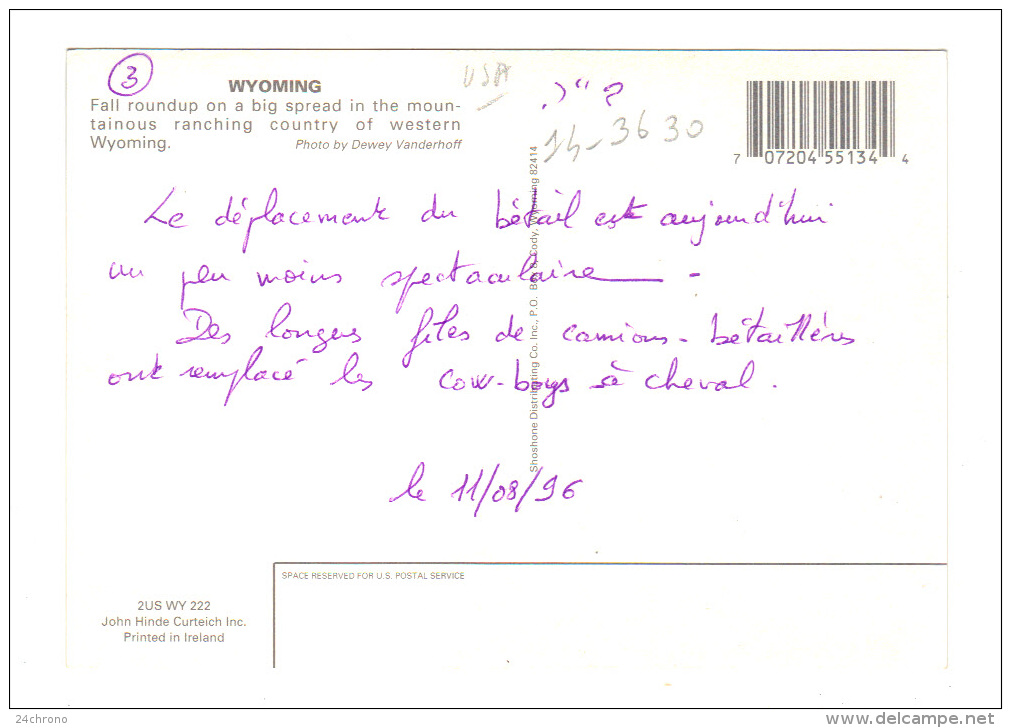 3
WYOMING
Fall roundup on a big spread in the moun-
tainous ranching country of western
Wyoming.
Photo by Dewey Vanderhoff
USA
3630
7 07204 55134 4
Le déplacement du bétail est aujourd'hui
un peu moins spectaculaire -
Des longues files de camions-bétaillères
ont remplacé les cow-boys à cheval.
le 11/08/96
Shoshone Distributing Co. Inc., P.O. Box Cody, Wyoming 82414
SPACE RESERVED FOR U.S. POSTAL SERVICE
2US WY 222
John Hinde Curteich Inc.
Printed in Ireland
24chrono
www.delcampe.net